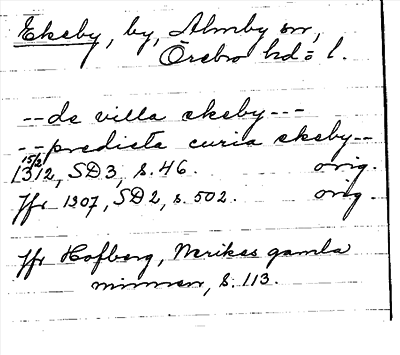 Ekeby, by, Almby sn,
Örebro hd o l.
--de villa ekeby---
--predicta curia ekeby--
15/2
1312, SD3, s. 46. orig.
Jfr 1307, SD2, s. 502. orig.
Jfr Hofberg, Nerikes gamla
minnen, s. 113.